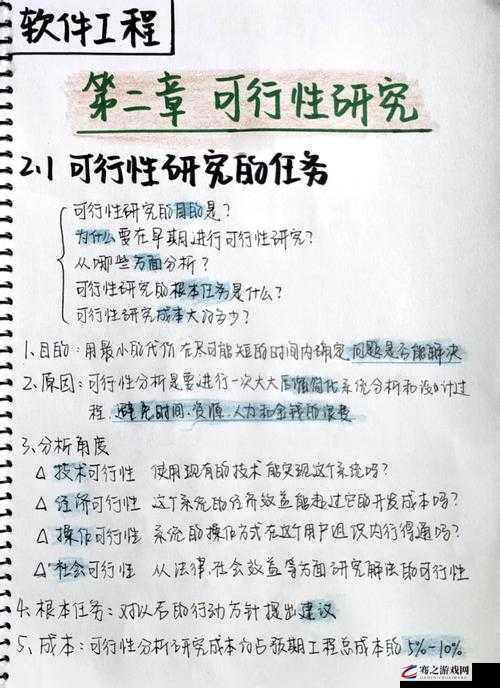 软件工程
第二章 可行性研究
2.1 可行性研究的任务
可行性研究的目的是？
为什么要在早期进行可行性研究？
从哪些方面分析？
可行性研究的根本任务是什么？
可行性研究成本大约多少？
1、目的：用最小的代价在尽可能短的时间内确定问题是否能解决
2、原因：可行性分析是要进行一次大大压缩简化系统分析和设计过
程，避免时间、资源、人力和金钱的浪费
3、分析角度
△ 技术可行性 使用现有的技术能实现这个系统吗？
△ 经济可行性 这个系统的经济效益能超过它的开发成本吗？
△ 操作可行性 系统的操作方式在这个用户组织内行得通吗？
△ 社会可行性 从法律、社会效益等方面研究解法的可行性
4、根本任务：对以后的行动方针提出建议
5、成本：可行性分析研究成本约占预期工程总成本的5%-10%
骞之游戏网